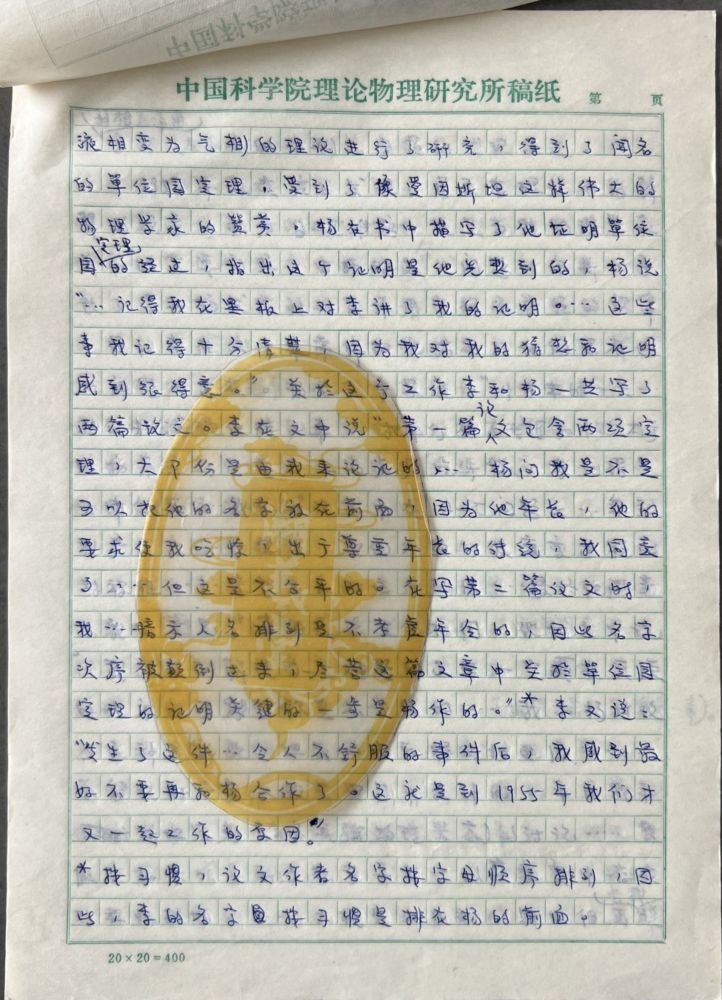 中国科学院理论物理研究所稿纸 第 页
液相变为气相)的理论进行了研究，得到了闻名
的单位圆定理，受到了像爱因斯坦这样伟大的
物理学家的赞美。杨在书中描写了他证明单位
圆定理的经过，指出这个证明是他先想到的，杨说
“…记得我在黑板上对李讲了我的证明。…这些
事我记得十分清楚，因为我对我的猜想和证明
感到很得意。”。关於这个工作李和杨一共写了
两篇论文。李在文中说“第一篇论文包含两项定
理，大部份是由我来论证的…杨问我是不是
可以把他的名字放在前面，因为他年长，他的
要求使我吃惊，出于尊重年长的传统，我同意
了…但这是不公平的。在写第二篇论文时，
我…暗示人名排列是不考虑年令的，因此名字
次序被颠倒过来，尽管这篇文章中关於单位圆
定理的证明关键的一步是杨作的。”* 李又说：
“发生了这件…令人不舒服的事件后，我感到最
好不要再和杨合作了。这就是到1955年我们才
又一起工作的原因。”
*按习惯，论文作者名字按字母顺序排列，因
此，李的名字按习惯是排在杨的前面。
20×20=400